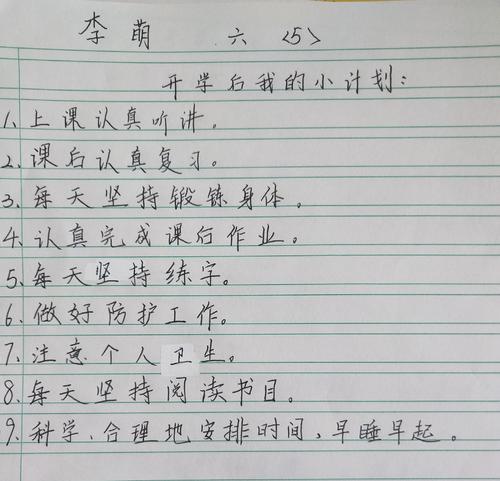 李萌 六<5>
开学后我的小计划:
1、上课认真听讲。
2、课后认真复习。
3、每天坚持锻练身体。
4、认真完成课后作业。
5、每天坚持练字。
6、做好防护工作。
7、注意个人卫生。
8、每天坚持阅读书目。
9、科学、合理地安排时间,早睡早起。